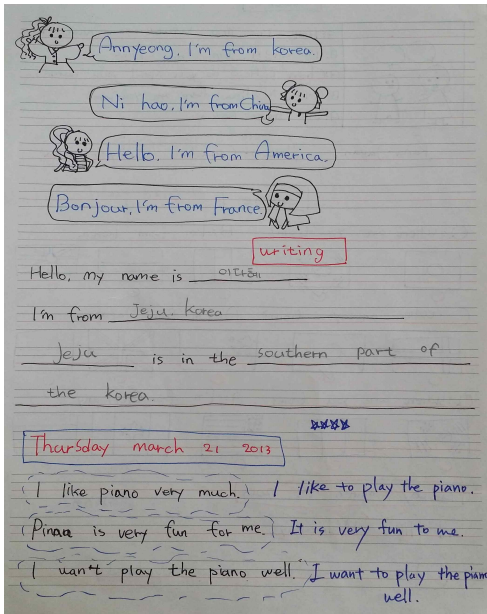 Annyeong, I'm from korea.
Ni hao, I'm from China
Hello, I'm from America.
Bonjour, I'm from France.
writing
Hello, my name is 이다혜
I'm from Jeju. Korea
Jeju is in the southern part of
the korea.
☆☆☆☆
Thursday march 21 2013
I like piano very much. I like to play the piano.
is very fun for me. It is very fun to me.
I want play the piano well. I want to play the piano
well.